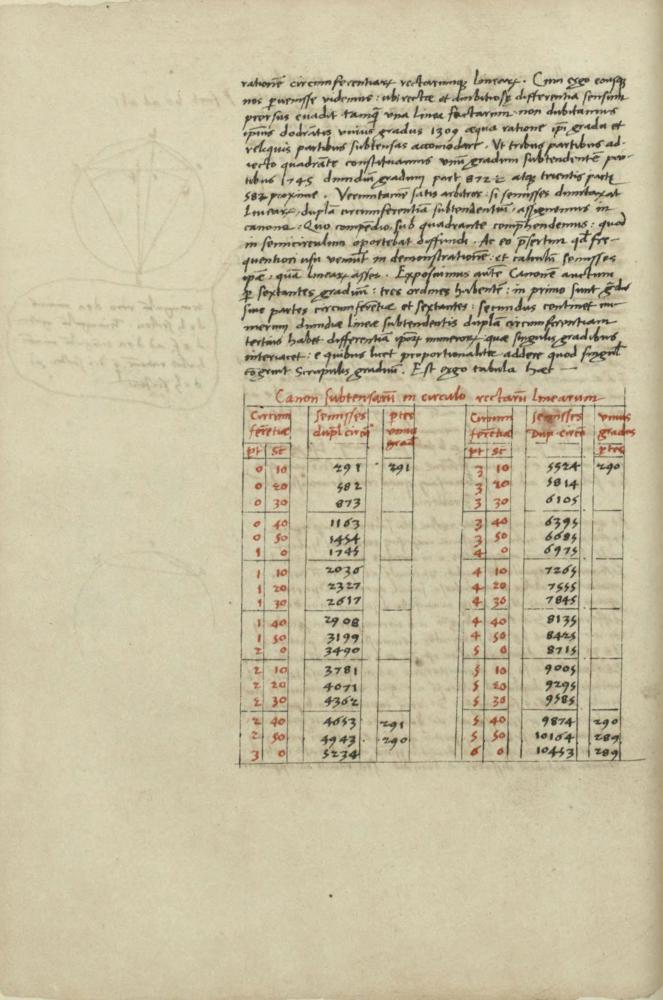 rationē circumferentiarꝝ rectarumqꝫ linearꝝ. Cum ergo eousqꝫ
nos ꝑuenisse videmus: ubi recta et ambitiosqꝫ differentia sensum
prorsus euadit tamqꝫ vna linea factarum: non dubitamus
ipsius dodrātis vnius gradus 1309 æqua ratione ip̄i gradu et
reliquis partibus subtensas accōmodare. Ut tribus partibus ad-
iecto quadrāte constituamus vnū gradum subtendentē par-
tibus 1745 dimidiū gradum part 872 atqꝫ trientis partꝭ
582 proxime. Veruntamē satis arbitror: si semisses dumtaxat
linearꝝ, duplā circumferentiā subtendentiū, assignemus in
canone. Quo compendio, sub quadrante comp̄hendemus, quod
in semicirculum oportebat diffundi. Ac eo p̄sertim qd̄ fre-
quentiori usu veniūt in demonstrationē: et calculū semisses
ipsæ, quā linearꝝ asses. Exposuimus autē Canonē auctum
ꝑ sextantes graduū: tres ordines habentē: in primo sunt gradus
siue partes circumferētiæ et sextantes: secundus continet nu-
merum dimidiæ lineæ subtendentis duplā circumferentiam
tertius habet differentiā ip̄orꝝ numerorꝝ quæ singulis gradibus
interiacet: e quibus licet proportionaliter addere quod singulꝭ
cōgruit scrupulis graduū. Est ergo tabula hæc —
Canon subtensarū in circulo rectarū linearum
Circum ferētiæ | Semisses dupl circū | ptes vnius grad | Circum ferētiæ | Semisses dup. circū | vnius gradus ptes
pt sc | | | pt sc
0 10 291 291 3 10 5524 290
0 20 582 3 20 5814
0 30 873 3 30 6105
0 40 1163 3 40 6395
0 50 1454 3 50 6685
1 0 1745 4 0 6975
1 10 2036 4 10 7265
1 20 2327 4 20 7555
1 30 2617 4 30 7845
1 40 2908 4 40 8135
1 50 3199 4 50 8425
2 0 3490 5 0 8715
2 10 3781 5 10 9005
2 20 4071 5 20 9295
2 30 4362 5 30 9585
2 40 4653 291 5 40 9874 290
2 50 4943 290 5 50 10164 289
3 0 5234 6 0 10453 289